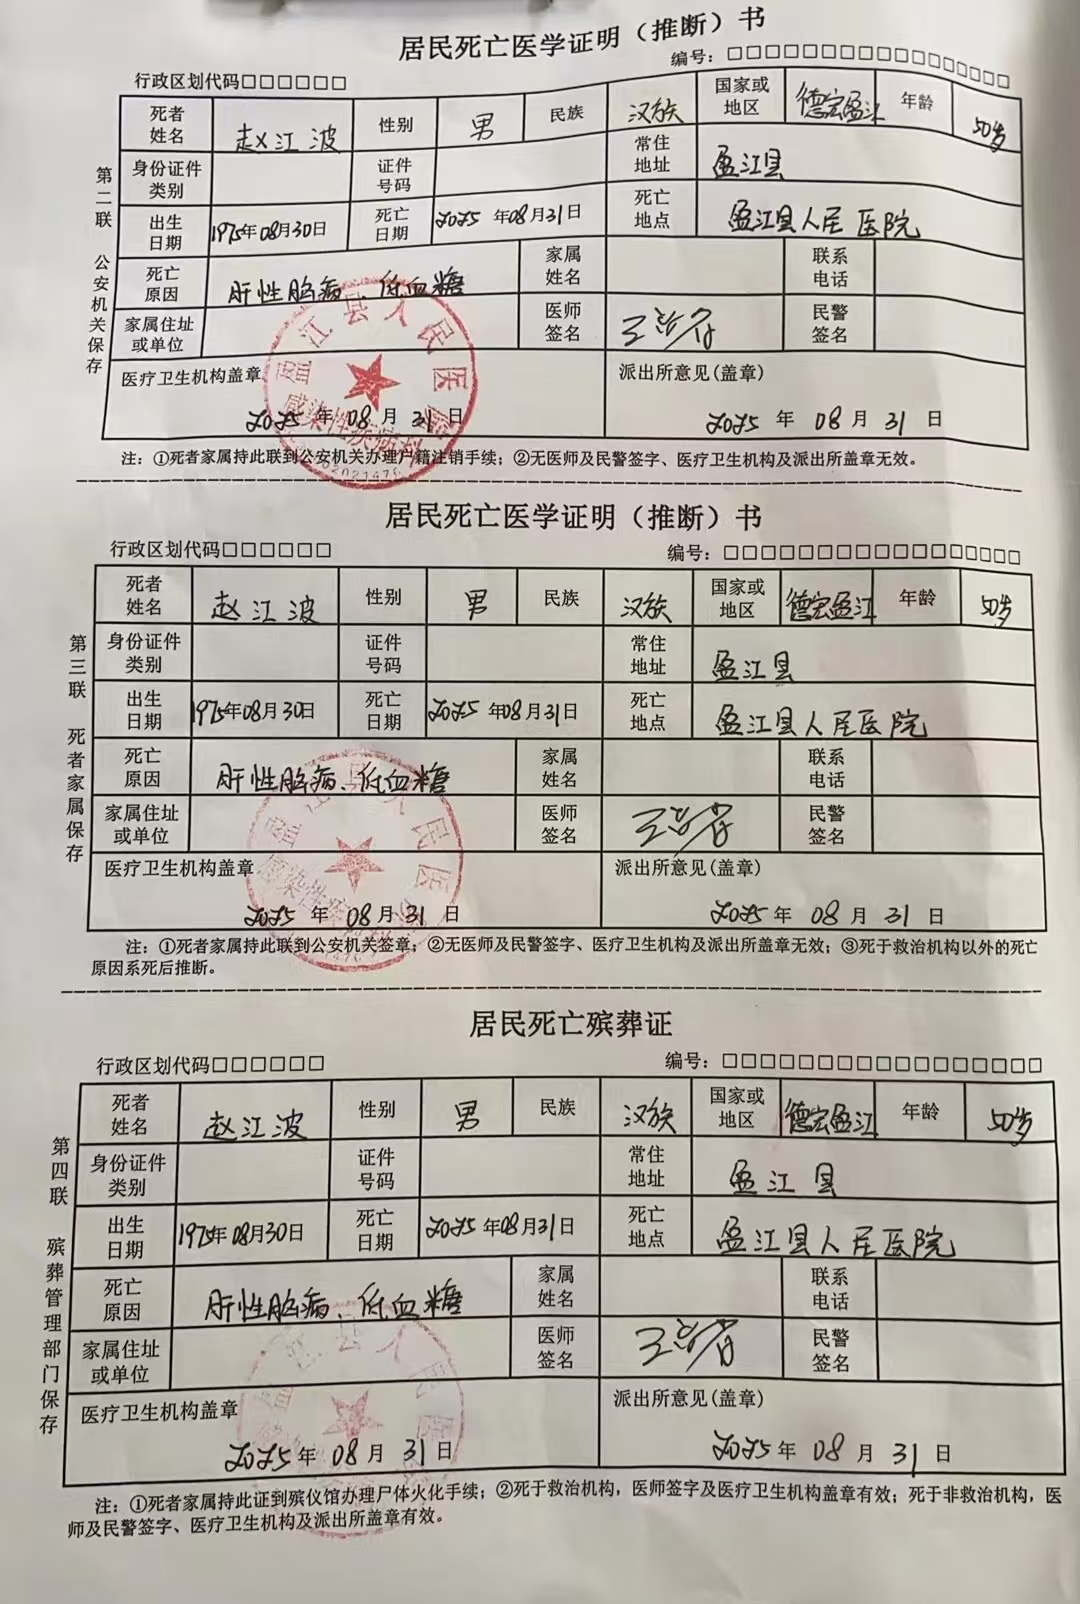 居民死亡医学证明（推断）书
行政区划代码□□□□□□ 编号：□□□□□□□□□□□□□□□□□
第二联 公安机关保存
死者姓名 赵江波 性别 男 民族 汉族 国家或地区 德宏盈江 年龄 50岁
身份证件类别 证件号码 常住地址 盈江县
出生日期 1975年08月30日 死亡日期 2025年08月31日 死亡地点 盈江县人民医院
死亡原因 肝性脑病、低血糖 家属姓名 联系电话
家属住址或单位 医师签名 民警签名
医疗卫生机构盖章 派出所意见(盖章)
盈江县人民医院
感染性疾病科
2025年08月31日 2025年08月31日
注：①死者家属持此联到公安机关办理户籍注销手续；②无医师及民警签字、医疗卫生机构及派出所盖章无效。
居民死亡医学证明（推断）书
行政区划代码□□□□□□ 编号：□□□□□□□□□□□□□□□□□
第三联 死者家属保存
死者姓名 赵江波 性别 男 民族 汉族 国家或地区 德宏盈江 年龄 50岁
身份证件类别 证件号码 常住地址 盈江县
出生日期 1975年08月30日 死亡日期 2025年08月31日 死亡地点 盈江县人民医院
死亡原因 肝性脑病、低血糖 家属姓名 联系电话
家属住址或单位 医师签名 民警签名
医疗卫生机构盖章 派出所意见(盖章)
2025年08月31日 2025年08月31日
注：①死者家属持此联到公安机关签章；②无医师及民警签字、医疗卫生机构及派出所盖章无效；③死于救治机构以外的死亡
原因系死后推断。
居民死亡殡葬证
行政区划代码□□□□□□ 编号：□□□□□□□□□□□□□□□□□
第四联 殡葬管理部门保存
死者姓名 赵江波 性别 男 民族 汉族 国家或地区 德宏盈江 年龄 50岁
身份证件类别 证件号码 常住地址 盈江县
出生日期 1975年08月30日 死亡日期 2025年08月31日 死亡地点 盈江县人民医院
死亡原因 肝性脑病、低血糖 家属姓名 联系电话
家属住址或单位 医师签名 民警签名
医疗卫生机构盖章 派出所意见(盖章)
2025年08月31日 2025年08月31日
注：①死者家属持此证到殡仪馆办理尸体火化手续；②死于救治机构，医师签字及医疗卫生机构盖章有效；死于非救治机构，医
师及民警签字、医疗卫生机构及派出所盖章有效。